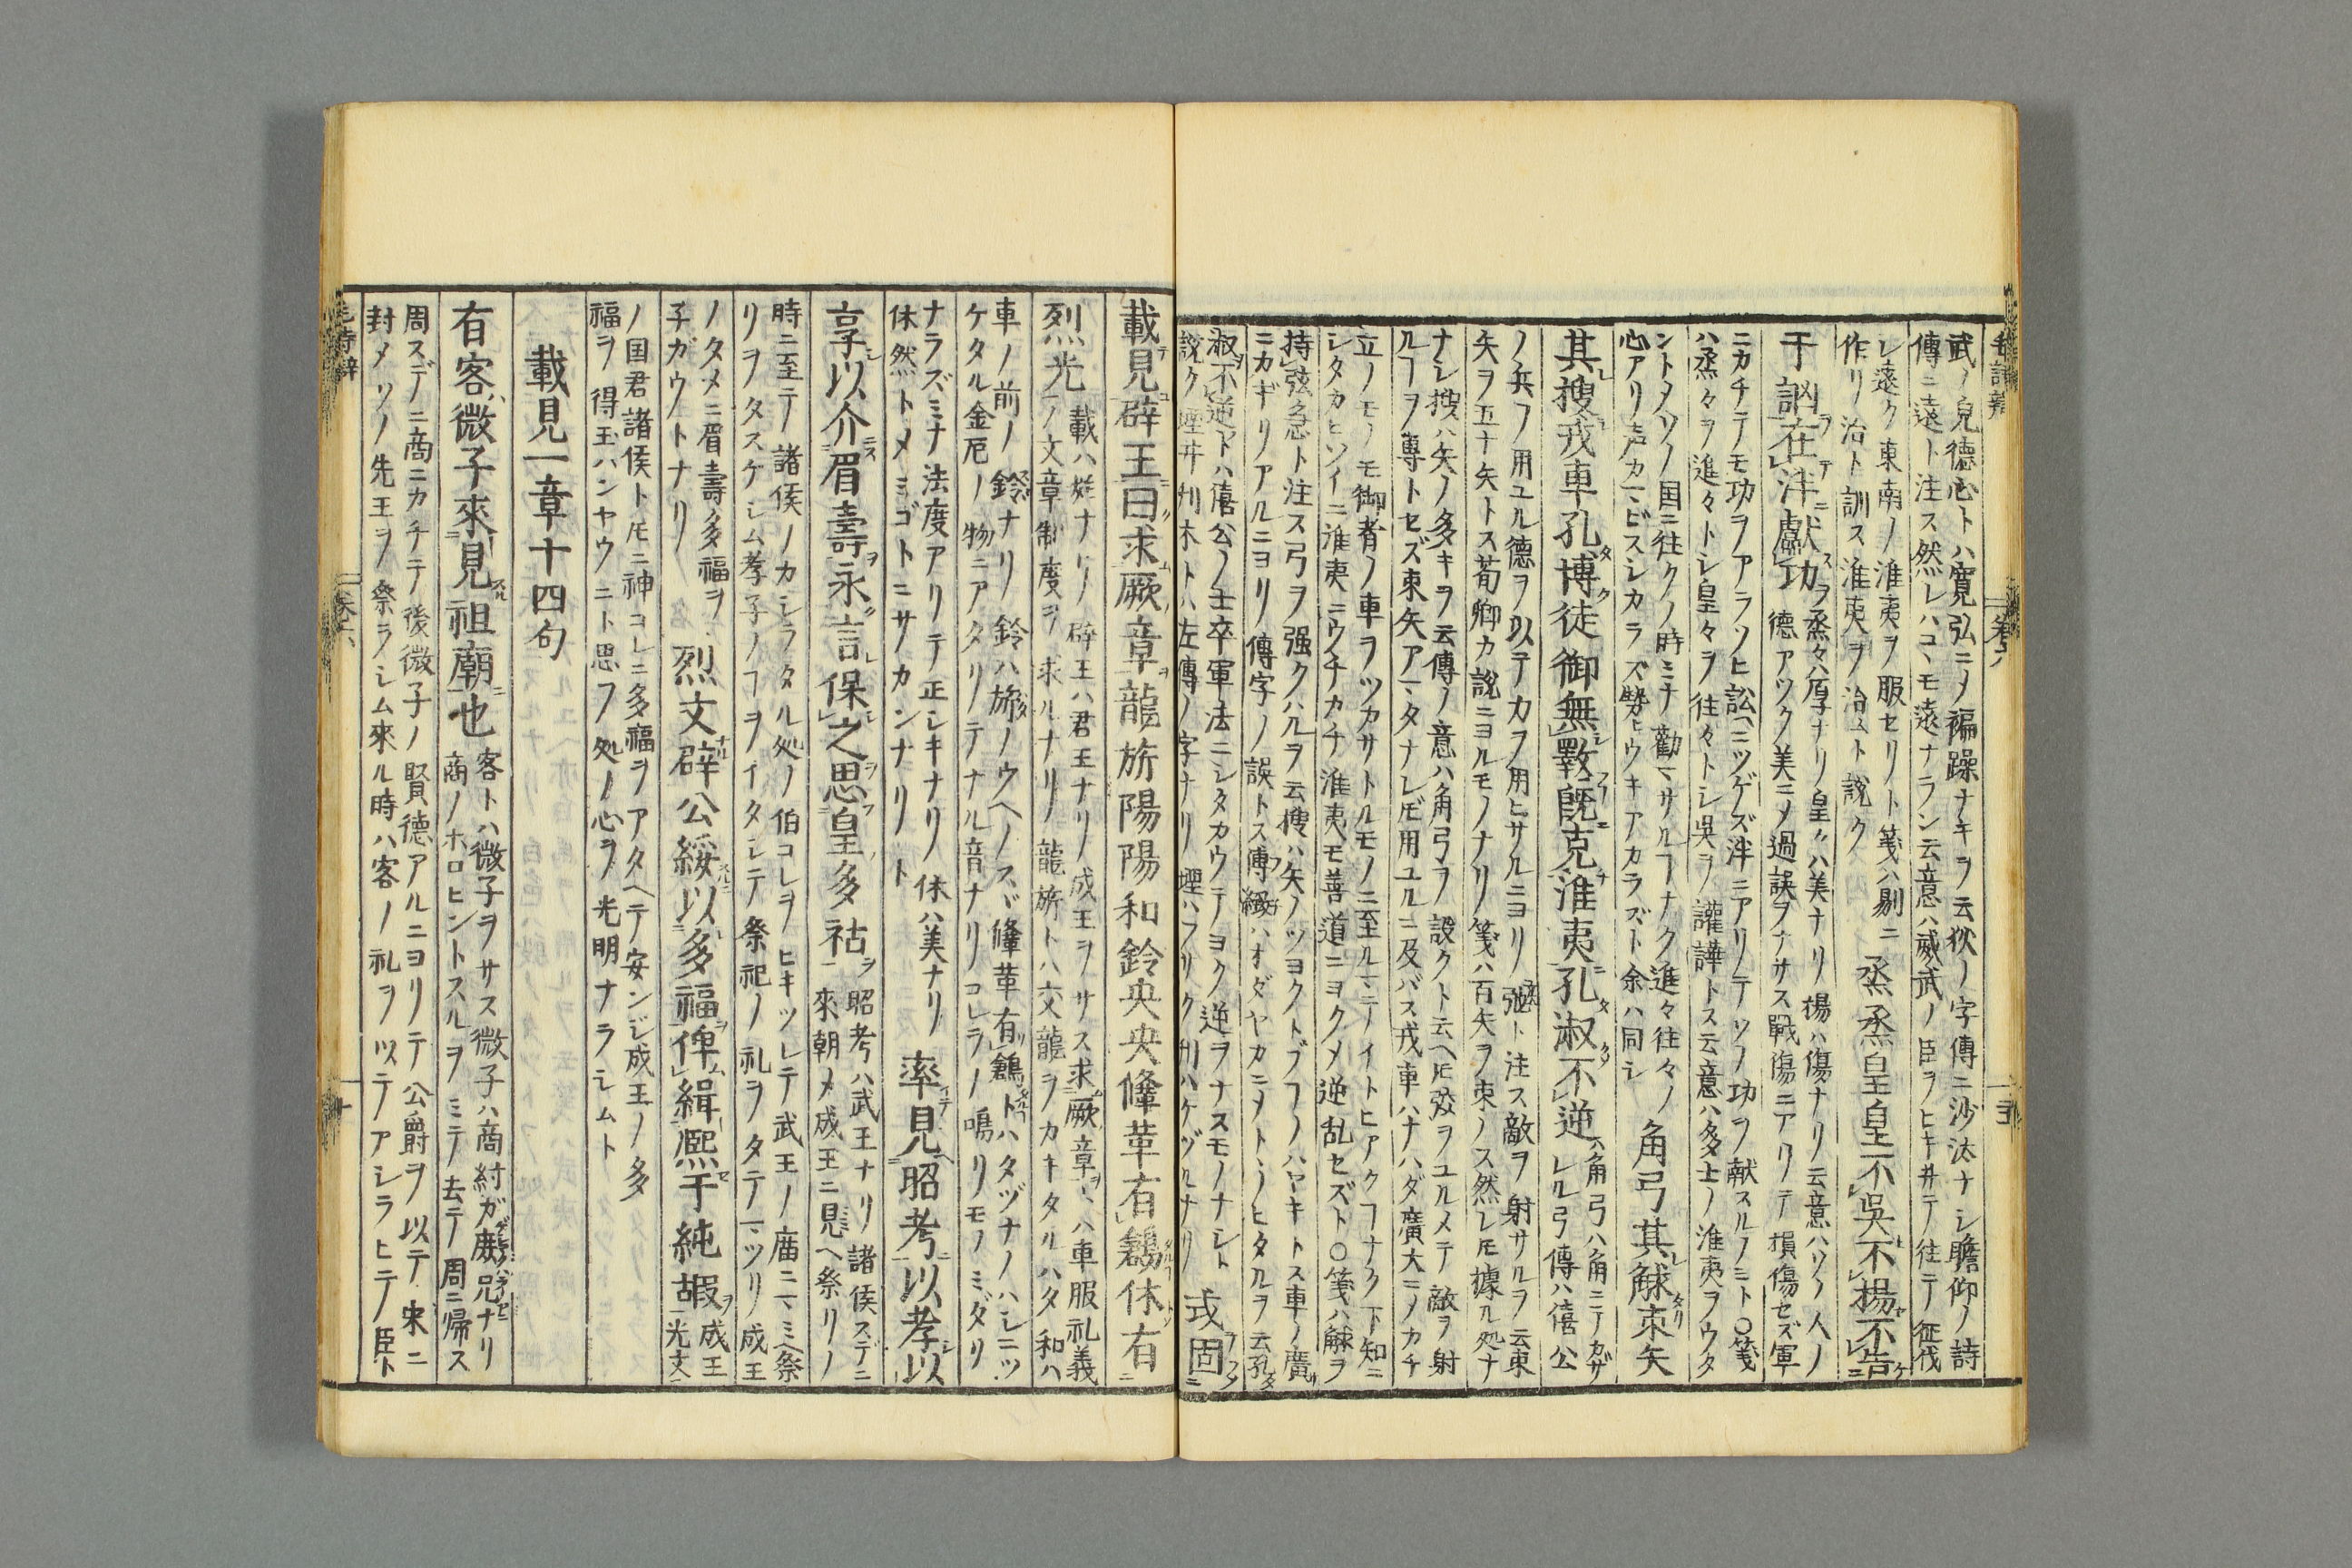 毛詩辨 卷六
武ノ皃德心トハ寬弘ニノ褊躁ナキヲ云狄ノ字傳ニ沙汰ナシ瞻仰ノ詩
傳ニ遠ト注ス然レハコヽモ遠ナラン云意ハ威武ノ臣ヲヒキ井テ往テ征伐
レ遠ク東南ノ淮夷ヲ服セリト箋ハ剔ニ
作リ治ト訓ス淮夷ヲ治ムト說ク
烝烝皇皇不吳不揚不告
于訩在泮獻功
烝々ハ厚ナリ皇〃ハ美ナリ揚ハ傷ナリ云意ハソノ人ノ
德アツク美ニメ過誤ヲナサス戰傷ニアリテ損傷セズ軍
ニカチテモ功ヲアラソヒ訟ニツゲズ泮ニアリテソノ功ヲ獻スルノミト〇箋
ハ烝々ヲ進々トシ皇々ヲ往々トシ吳ヲ讙譁トス云意ハ多士ノ淮夷ヲウタ
ントメソノ国ニ往クノ時ミナ勸マサルヿナク進々往々ノ
心アリ声カマビスシカラズ勢ヒウキアカラズト余ハ同シ
角弓其觩束矢
其搜戎車孔博徒御無斁旣克淮夷孔淑不逆
角弓ハ角ニテカザ
レル弓傳ハ僖公
ノ兵ヲ用ユル德ヲ以テカヲ用ヒサルニヨリ弛ト注ス敵ヲ射サルヲ云束
矢ヲ五十矢トス荀卿カ說ニヨルモノナリ箋ハ百矢ヲ束ノス然レ𪜈據ル処ナ
ナシ搜ハ矢ノ多キヲ云傳ノ意ハ角弓ヲ設クト云ヘ𪜈弦ヲユルメテ敵ヲ射
ルヿヲ專トセズ束矢アマタナレ𪜈用ユルニ及バス戎車ハナハダ廣大ニノカチ
立ノモノモ御者ノ車ヲツカサトルモノニ至ルマテイトヒアクヿナク下知ニ
シタカヒソイニ淮夷ニウチカチ淮夷モ善道ニヨクメ逆乱セズト〇箋ハ觩ヲ
持弦急ト注ス弓ヲ强クハルヲ云搜ハ矢ノツヨクトブヿノハヤキトス車ノ廣
ニカギリアルニヨリ傳字ノ誤トス傅緻ハオダヤカニメトヽノヒタルヲ云孔
淑不逆トハ僖公ノ士卒軍法ニシタカウテヨク逆ヲナスモノナシト
說ク堙井刊木トハ左傳ノ字ナリ堙ハフサク刊ハケヅルナリ
式固
載見辟王曰求厥章龍旂陽陽和鈴央央鞗革有鶬休有
烈光
載ハ始ナリ辟王ハ君王ナリ成王ヲサス求厥章ハ車服礼義
ノ文章制度ヲ求ルナリ龍旂トハ交龍ヲカキタルハタ和ハ
車ノ前ノ鈴ナリ鈴ハ旂ノウヘノスヾ鞗革有鶬トハタヅナノハシニツ
ケタル金厄ノ物ニアタリテナル音ナリコレラノ鳴リモノミダリ
ナラズミナ法度アリテ正シキナリ休ハ美ナリ
休然トメミゴトニサカンナリト
率見昭考以孝以
享以介眉壽永言保之思皇多祜
昭考ハ武王ナリ諸侯スデニ
來朝メ成王ニ見ヘ祭リノ
時ニ至テ諸侯ノカシラタル処ノ伯コレヲヒキツレテ武王ノ廟ニマミヘ祭
リヲタスケシム孝子ノヿヲイタシテ祭祀ノ礼ヲタテマツリ成王
ノタメニ眉壽多福ヲ
子ガウトナリ
烈文辟公綏以多福俾緝熙于純嘏
成王
光文
ノ国君諸侯トモニ神コレニ多福ヲアタヘテ安ンジ成王ノ多
福ヲ得玉ハンヤウニト思フ処ノ心ヲ光明ナラシムト
載見一章十四句
有客微子來見祖廟也
客トハ微子ヲサス微子ハ商紂ガ庶兄ナリ
商ノホロヒントスルヲミテ去テ周ニ帰ス
周スデニ商ニカチテ後微子ノ賢德アルニヨリテ公爵ヲ以テ宋ニ
封メソノ先王ヲ祭ラシム來ル時ハ客ノ礼ヲ以テアシラヒテ臣ト
毛詩辨 卷六 十